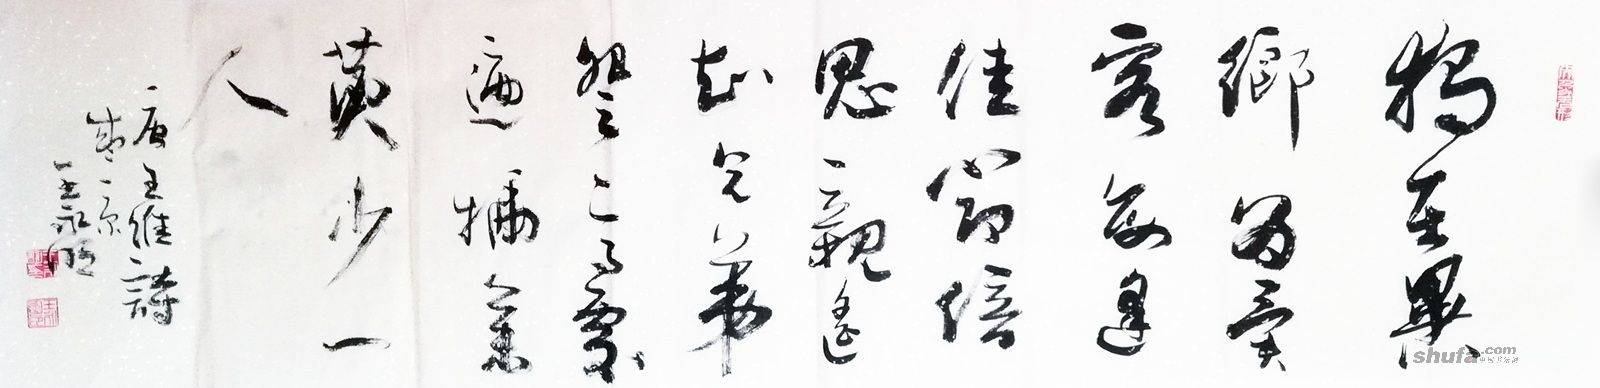 獨在異
鄉為異
客每逢
佳節倍
思親遙
知兄弟
登高處
遍插茱
萸少一
人
唐王維詩
京
王永
shufa.com